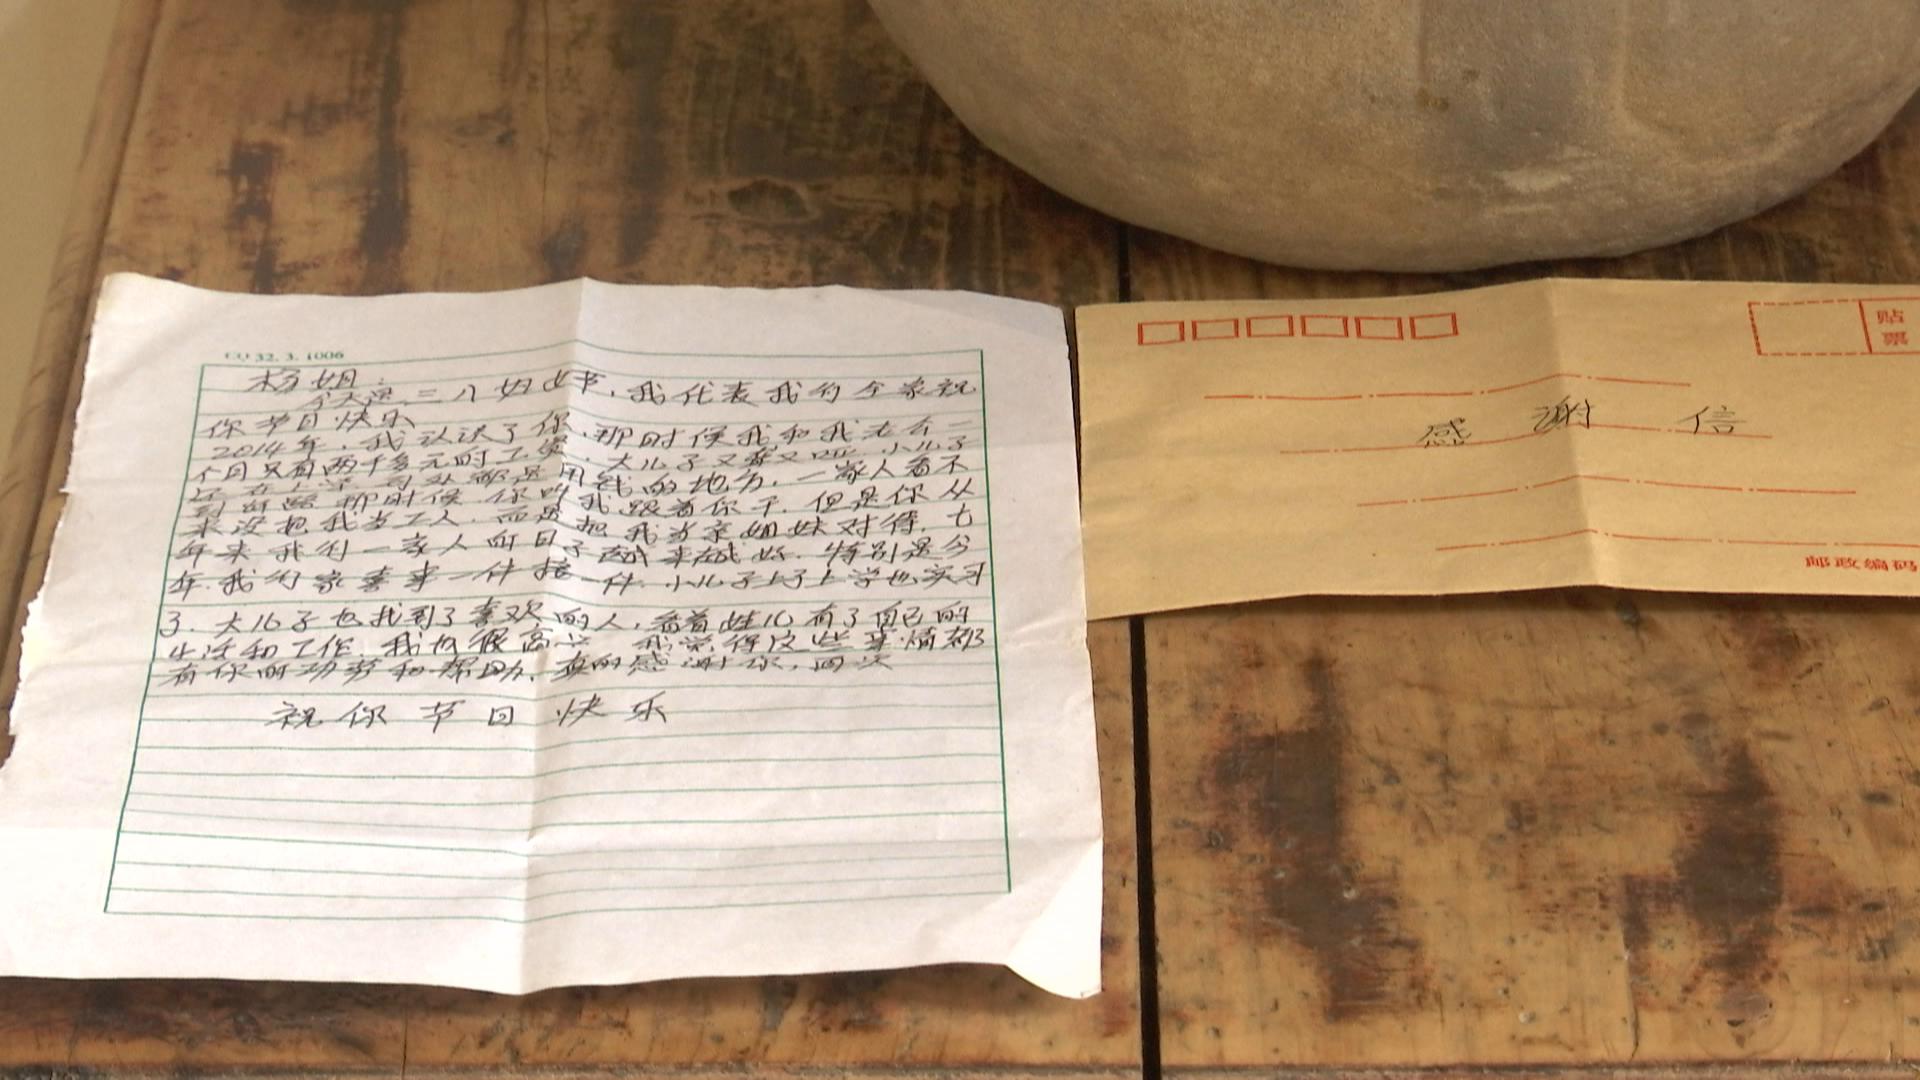 CQ 32.3.1006
杨姐:
今天是三八妇女节,我代表我们全家祝
你节日快乐
2014年,我认识了你,那时候我和我老公一
个月只有两千多元的工资,大儿子又聋又哑,小儿子
还在上学,到处都是用钱的地方,一家人看不
到出路,那时候,你叫我跟着你干,但是你从
来没把我当工人,而是把我当亲姐妹对待,七
年来我们一家人的日子越来越好,特别是今
年,我们家喜事一件接一件,小儿子上了上学也实习
了,大儿子也找到了喜欢的人,看着姓儿有了自己的
生活和工作,我也很高兴,我觉得这些事情都
有你的功劳和帮助,真的感谢你,
祝你节日快乐
贴
票
感谢信
邮政编码